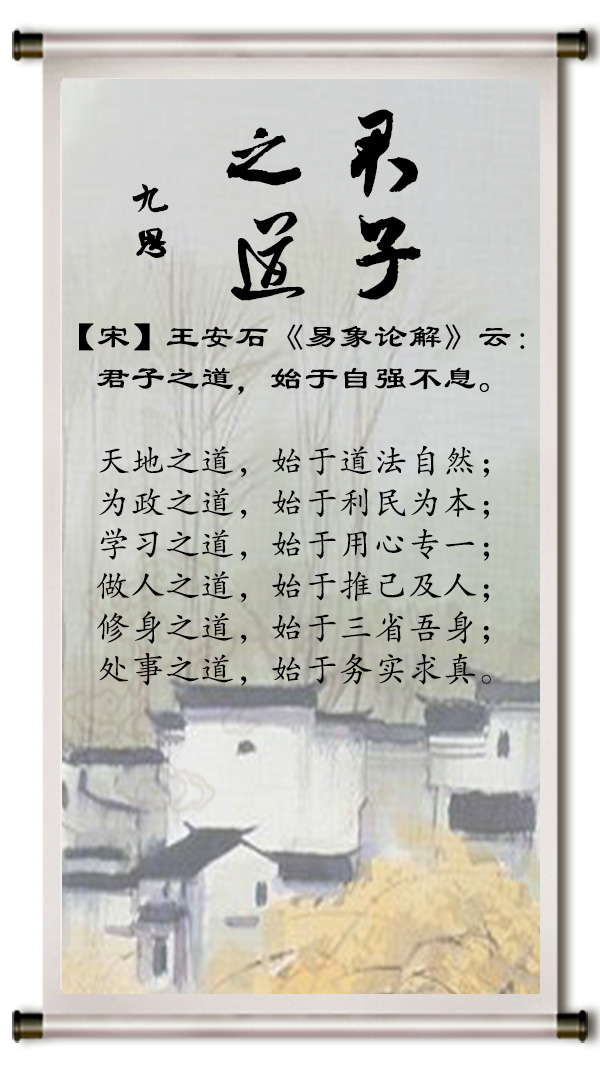 君子
之道
九思
【宋】王安石《易象论解》云：
君子之道，始于自强不息。
天地之道，始于道法自然；
为政之道，始于利民为本；
学习之道，始于用心专一；
做人之道，始于推己及人；
修身之道，始于三省吾身；
处事之道，始于务实求真。